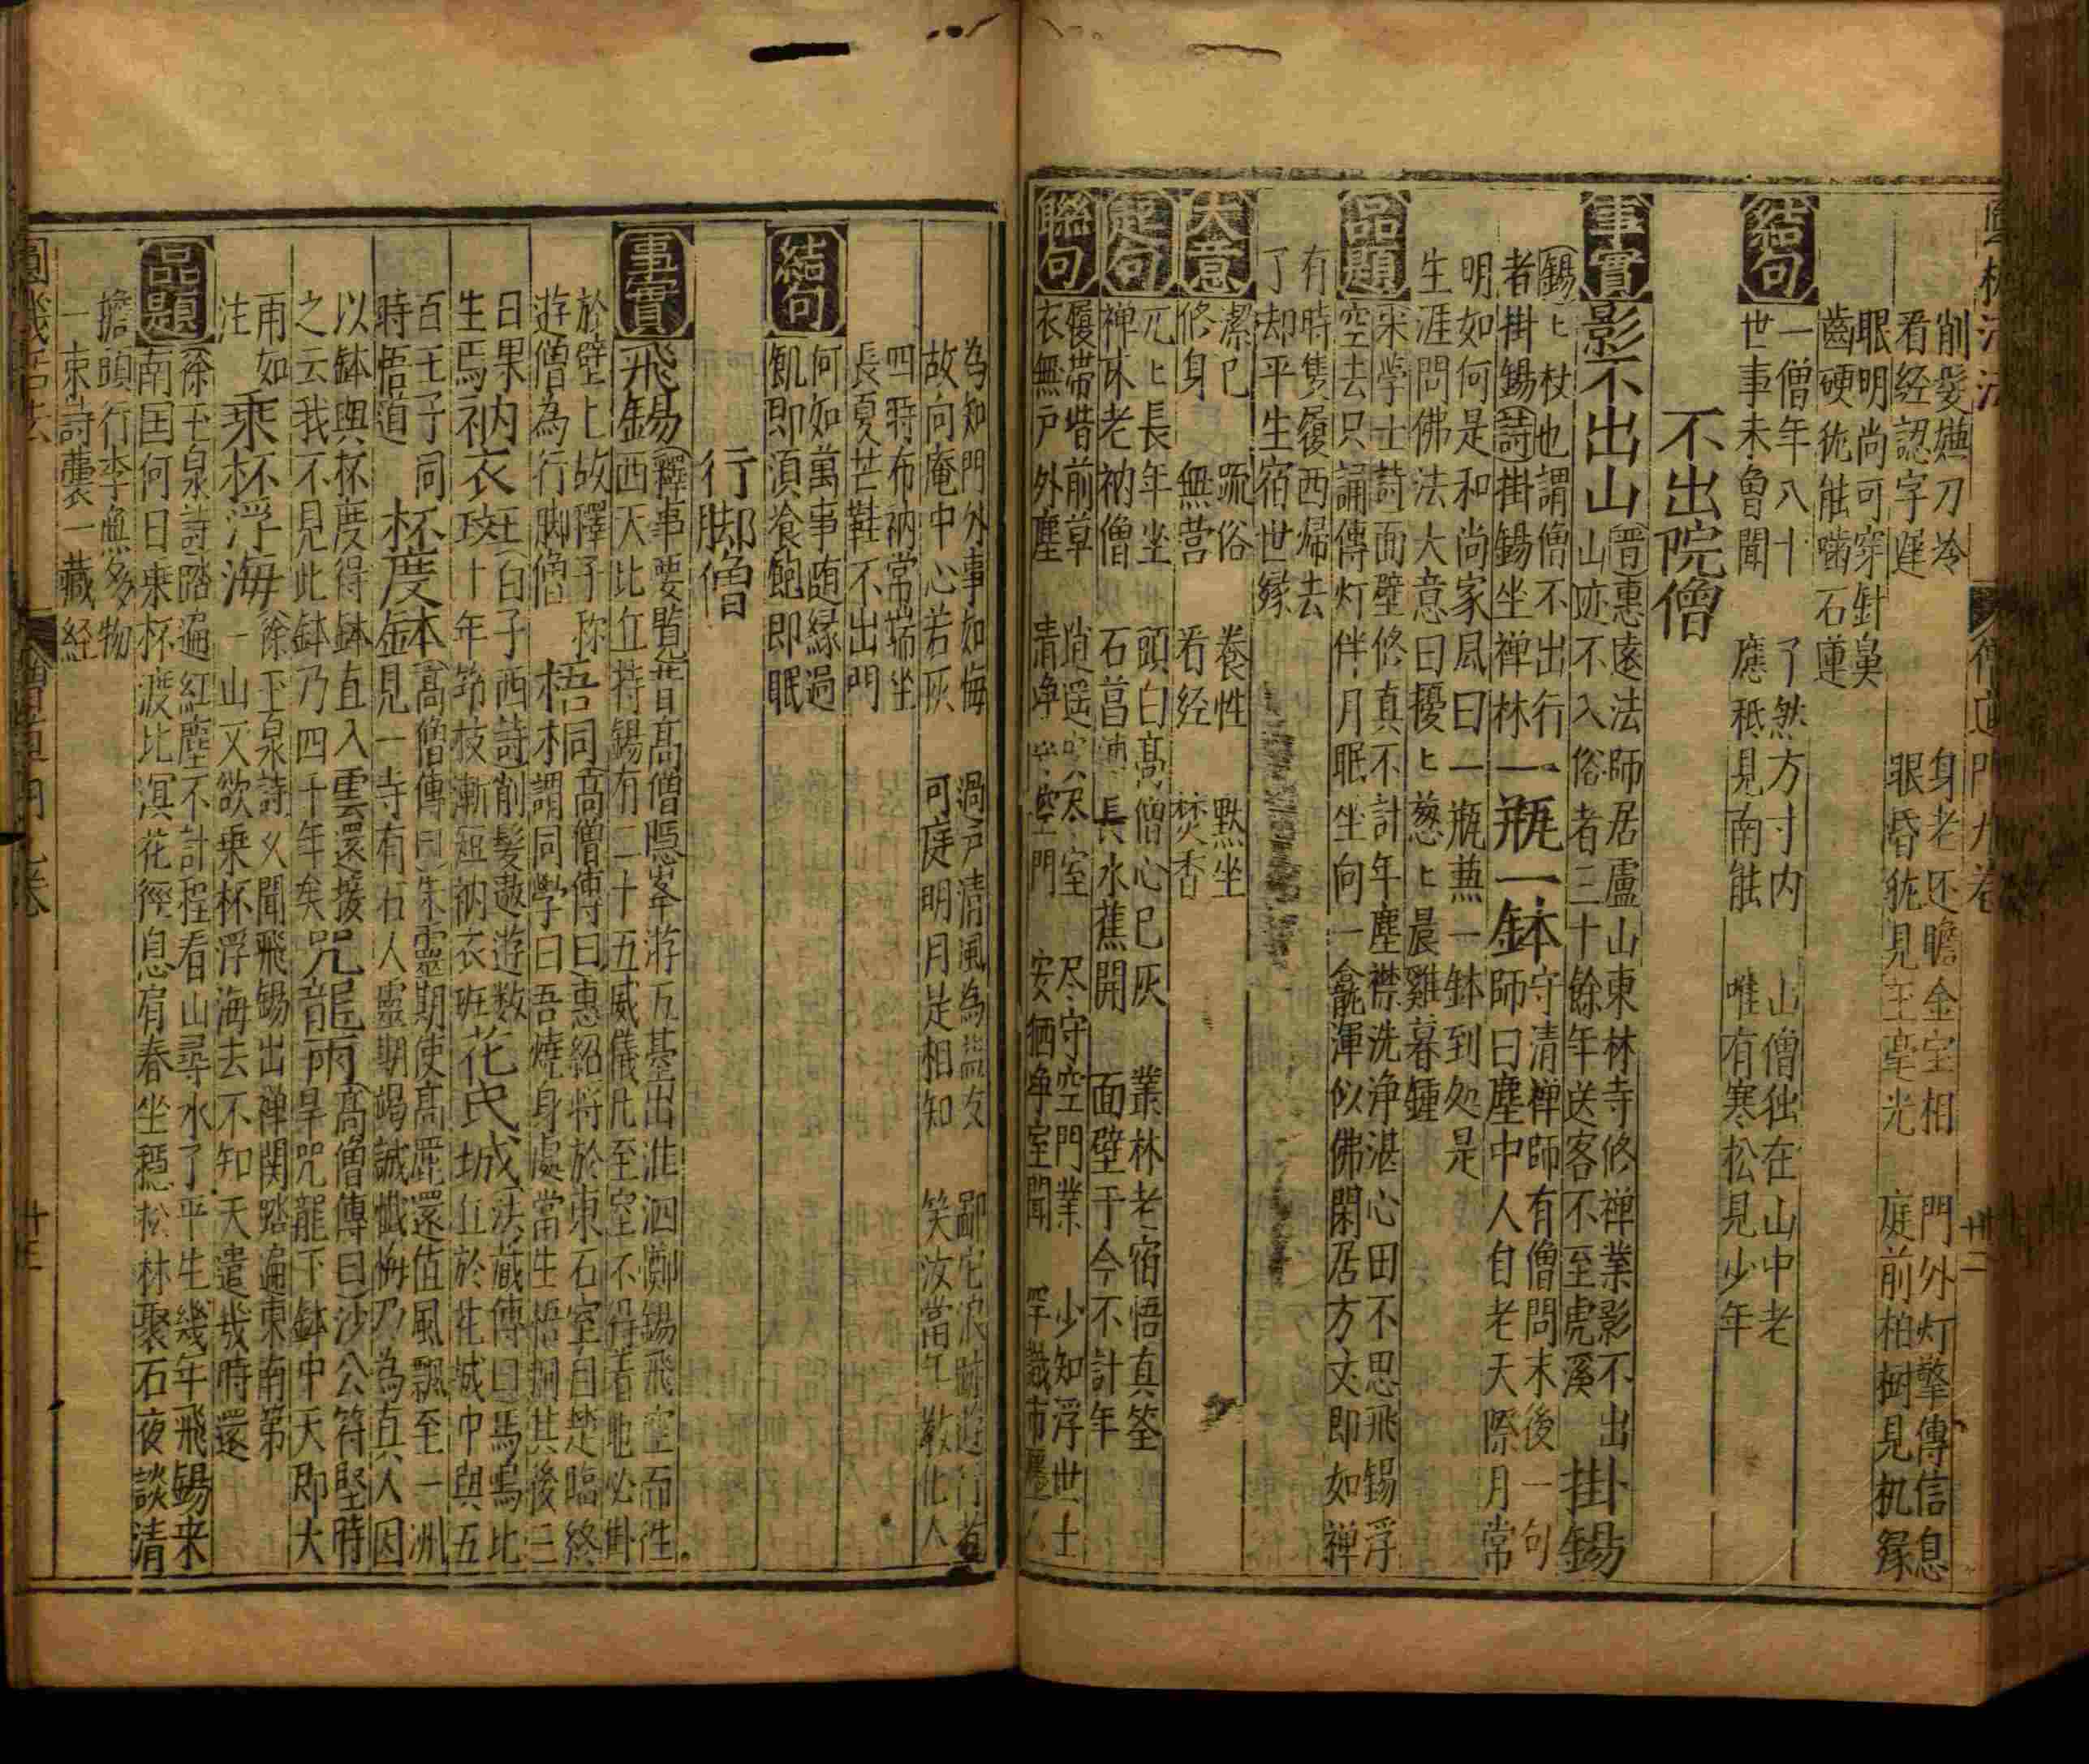 削髮嫌刀冷　身老还瞻金宝相　門外灯擎傳信息
看经認字遅　眼昏犹見玉毫光　庭前柏樹見机縁
眼明尚可穿針鼻
齒硬犹能嚙石蓮
結句
一僧年八十　了然方寸内　山僧独在山中老
世事未曾聞　應秪見南能　唯有寒松見少年
不出院僧
事實
影不出山
晋惠遠法師居盧山東林寺修禅業影不出
山迹不入俗者三十餘年送客不至虎溪
掛錫
錫ヒ杖也謂僧不出行
者掛錫詩掛錫坐禅林
一瓶一鉢
守清禅師有僧問末後一句
師曰塵中人自老天際月常
明如何是和尚家風曰一瓶兼一鉢到処是
生涯問佛法大意曰擾ヒ葱ヒ晨雞暮鍾
品題
宋学士詩面壁修真不計年塵襟洗净湛心田不思飛錫浮
空去只誦傳灯伴月眠坐向一龕渾似佛閑居方丈即如禅
有時隻履西帰去
了却平生宿世縁
大意
潔已　踈俗　養性　默坐
修身　無营　看经　焚香
起句
兀ヒ長年坐　頭白高僧心已灰　叢林老宿悟真筌
禅床老衲僧　石菖長水蕉開　面壁于今不計年
聯句
履帯堦前草　逍遥室　尽守空門業　少知浮世士
衣無戸外塵　清净門　安栖净室聞　罕識市廛人
為知門外事如悔　過戸清風為益友
故向庵中心若灰　可庭明月是相知　笑汝當年敎化人
四時布衲常端坐
長夏芒鞋不出門
結句
何如萬事随縁過
飢即湏飡飽即眠
行脚僧
事實
飛錫
釋事要覧昔高僧隠峯游五臺出淮泗擲錫飛空而往
西天比丘持錫有二十五威儀凡至室不得着地必掛
於壁上故釋子称
游僧為行脚僧
梧桐
同高僧傳曰惠紹将於東石室自焚臨終
謂同學曰吾燒身處當生梧桐其後三
日果
生焉
衲衣斑
王白子西詩削髮遨游数
十年筇枝漸短衲衣班
花氏城
法蔵傳曰馬鳴比
丘於花城中與五
百王子同
時悟道
杯度鉢
高僧傳曰朱靈期使高麗還值風飄至一洲
見一寺有石人靈期竭誠懺悔乃為真人因
以鉢與杯度得鉢直入雲還接
之云我不見此鉢乃四十年矣
咒龍雨
高僧傳曰沙公符堅時
旱咒龍下鉢中天即大
雨如
注
乘杯浮海
徐玉泉詩乂聞飛錫出禅関踏遍東南第
一山又欲乗杯浮海去不知天遣幾時還
品題
徐玉泉詩踏遍紅塵不計程看山尋水了平生幾年飛錫来
南国何日乗杯渡比溟花徑息肩春坐穏松林聚石夜談清
擔頭行李無多物
一束詩囊一藏経